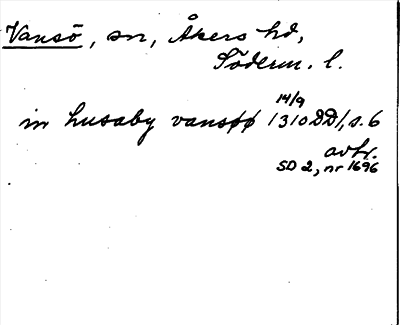 Vansö, sn, Åkers hd,
Söderm. l.
14/9
in husaby vansøø 1310 DD1, s. 6
avtr.
SD 2, nr 1696